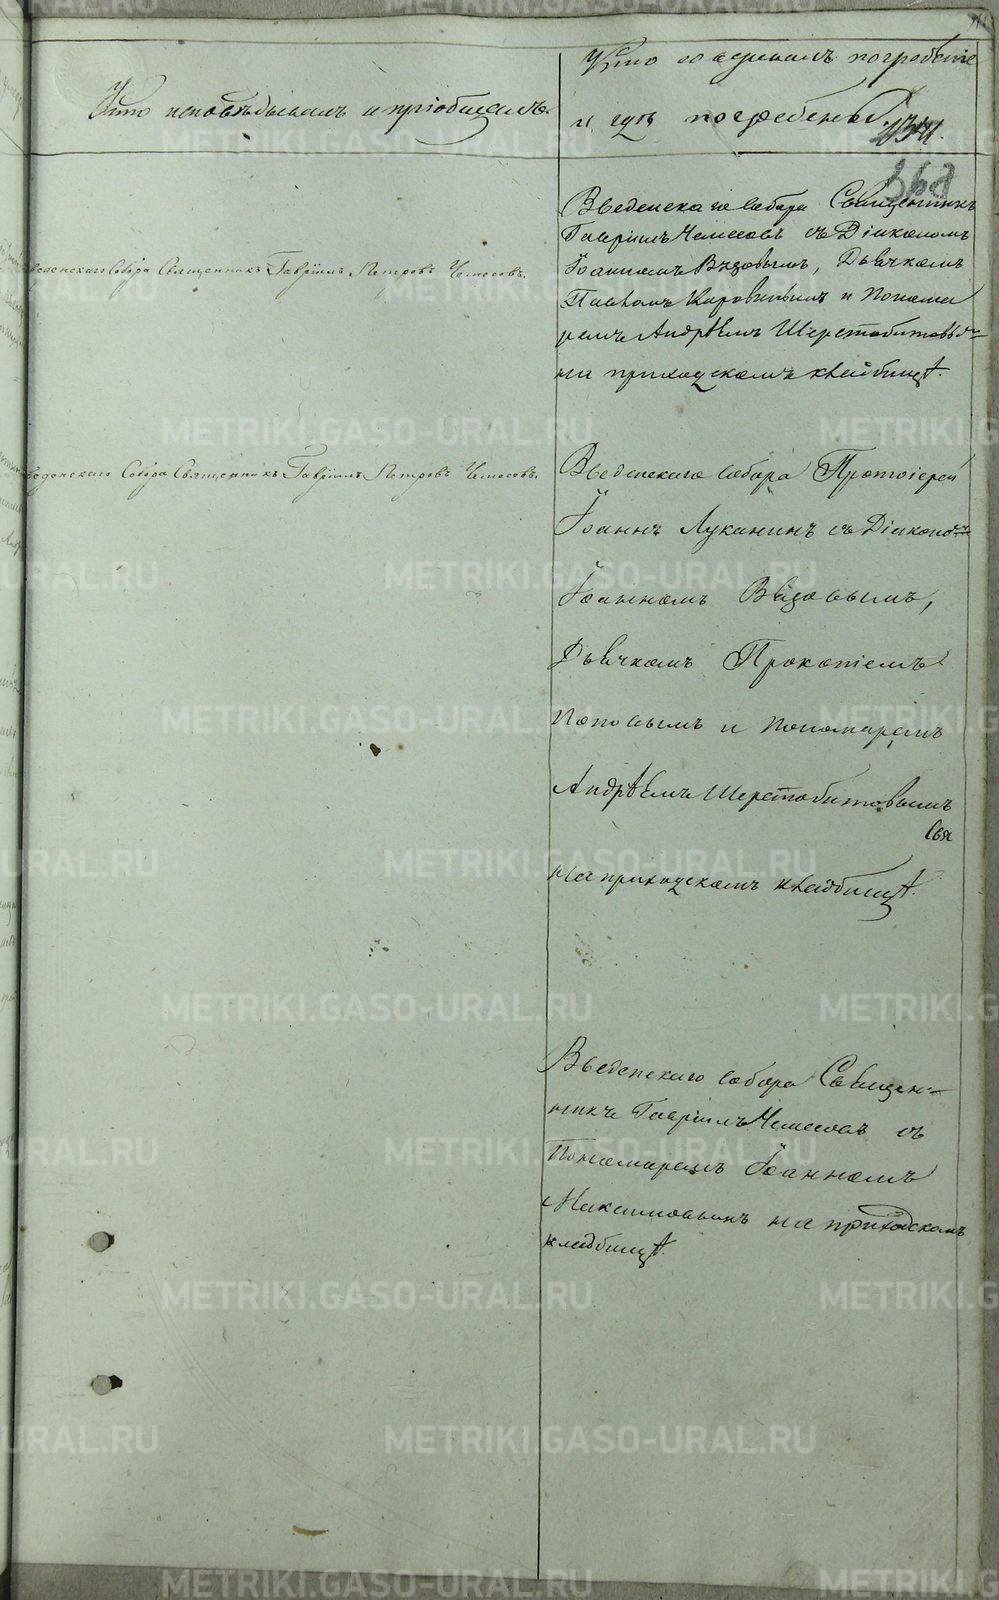 Кто исповѣдывалъ и пріобщалъ.
Кто совершалъ погребеніе
и гдѣ погребены
Введенскаго Собора Священникъ Гавріилъ Петровъ Чемесовъ.
Введенскаго собора Священникъ
Гавріилъ Чемесовъ съ Діакономъ
Іоанномъ Видовымъ, Дьячкомъ
Павломъ Коровинымъ и Понома
ремъ Андрѣемъ Шерстобитовымъ
на приходскомъ кладбищѣ.
Введенскаго Собора Священникъ Гавріилъ Петровъ Чемесовъ.
Введенскаго собора Протоіерей
Іоаннъ Луканинъ съ Діакономъ
Іоанномъ Видовымъ,
Дьячкомъ Прокопіемъ
Поповымъ и Пономаремъ
Андрѣемъ Шерстобитовымъ
на приходскомъ кладбищѣ.
Введенскаго собора Священ-
никъ Гавріилъ Чемесовъ съ
Пономаремъ Іоанномъ
Максимовымъ на приходскомъ
кладбищѣ.
METRIKI.GASO-URAL.RU